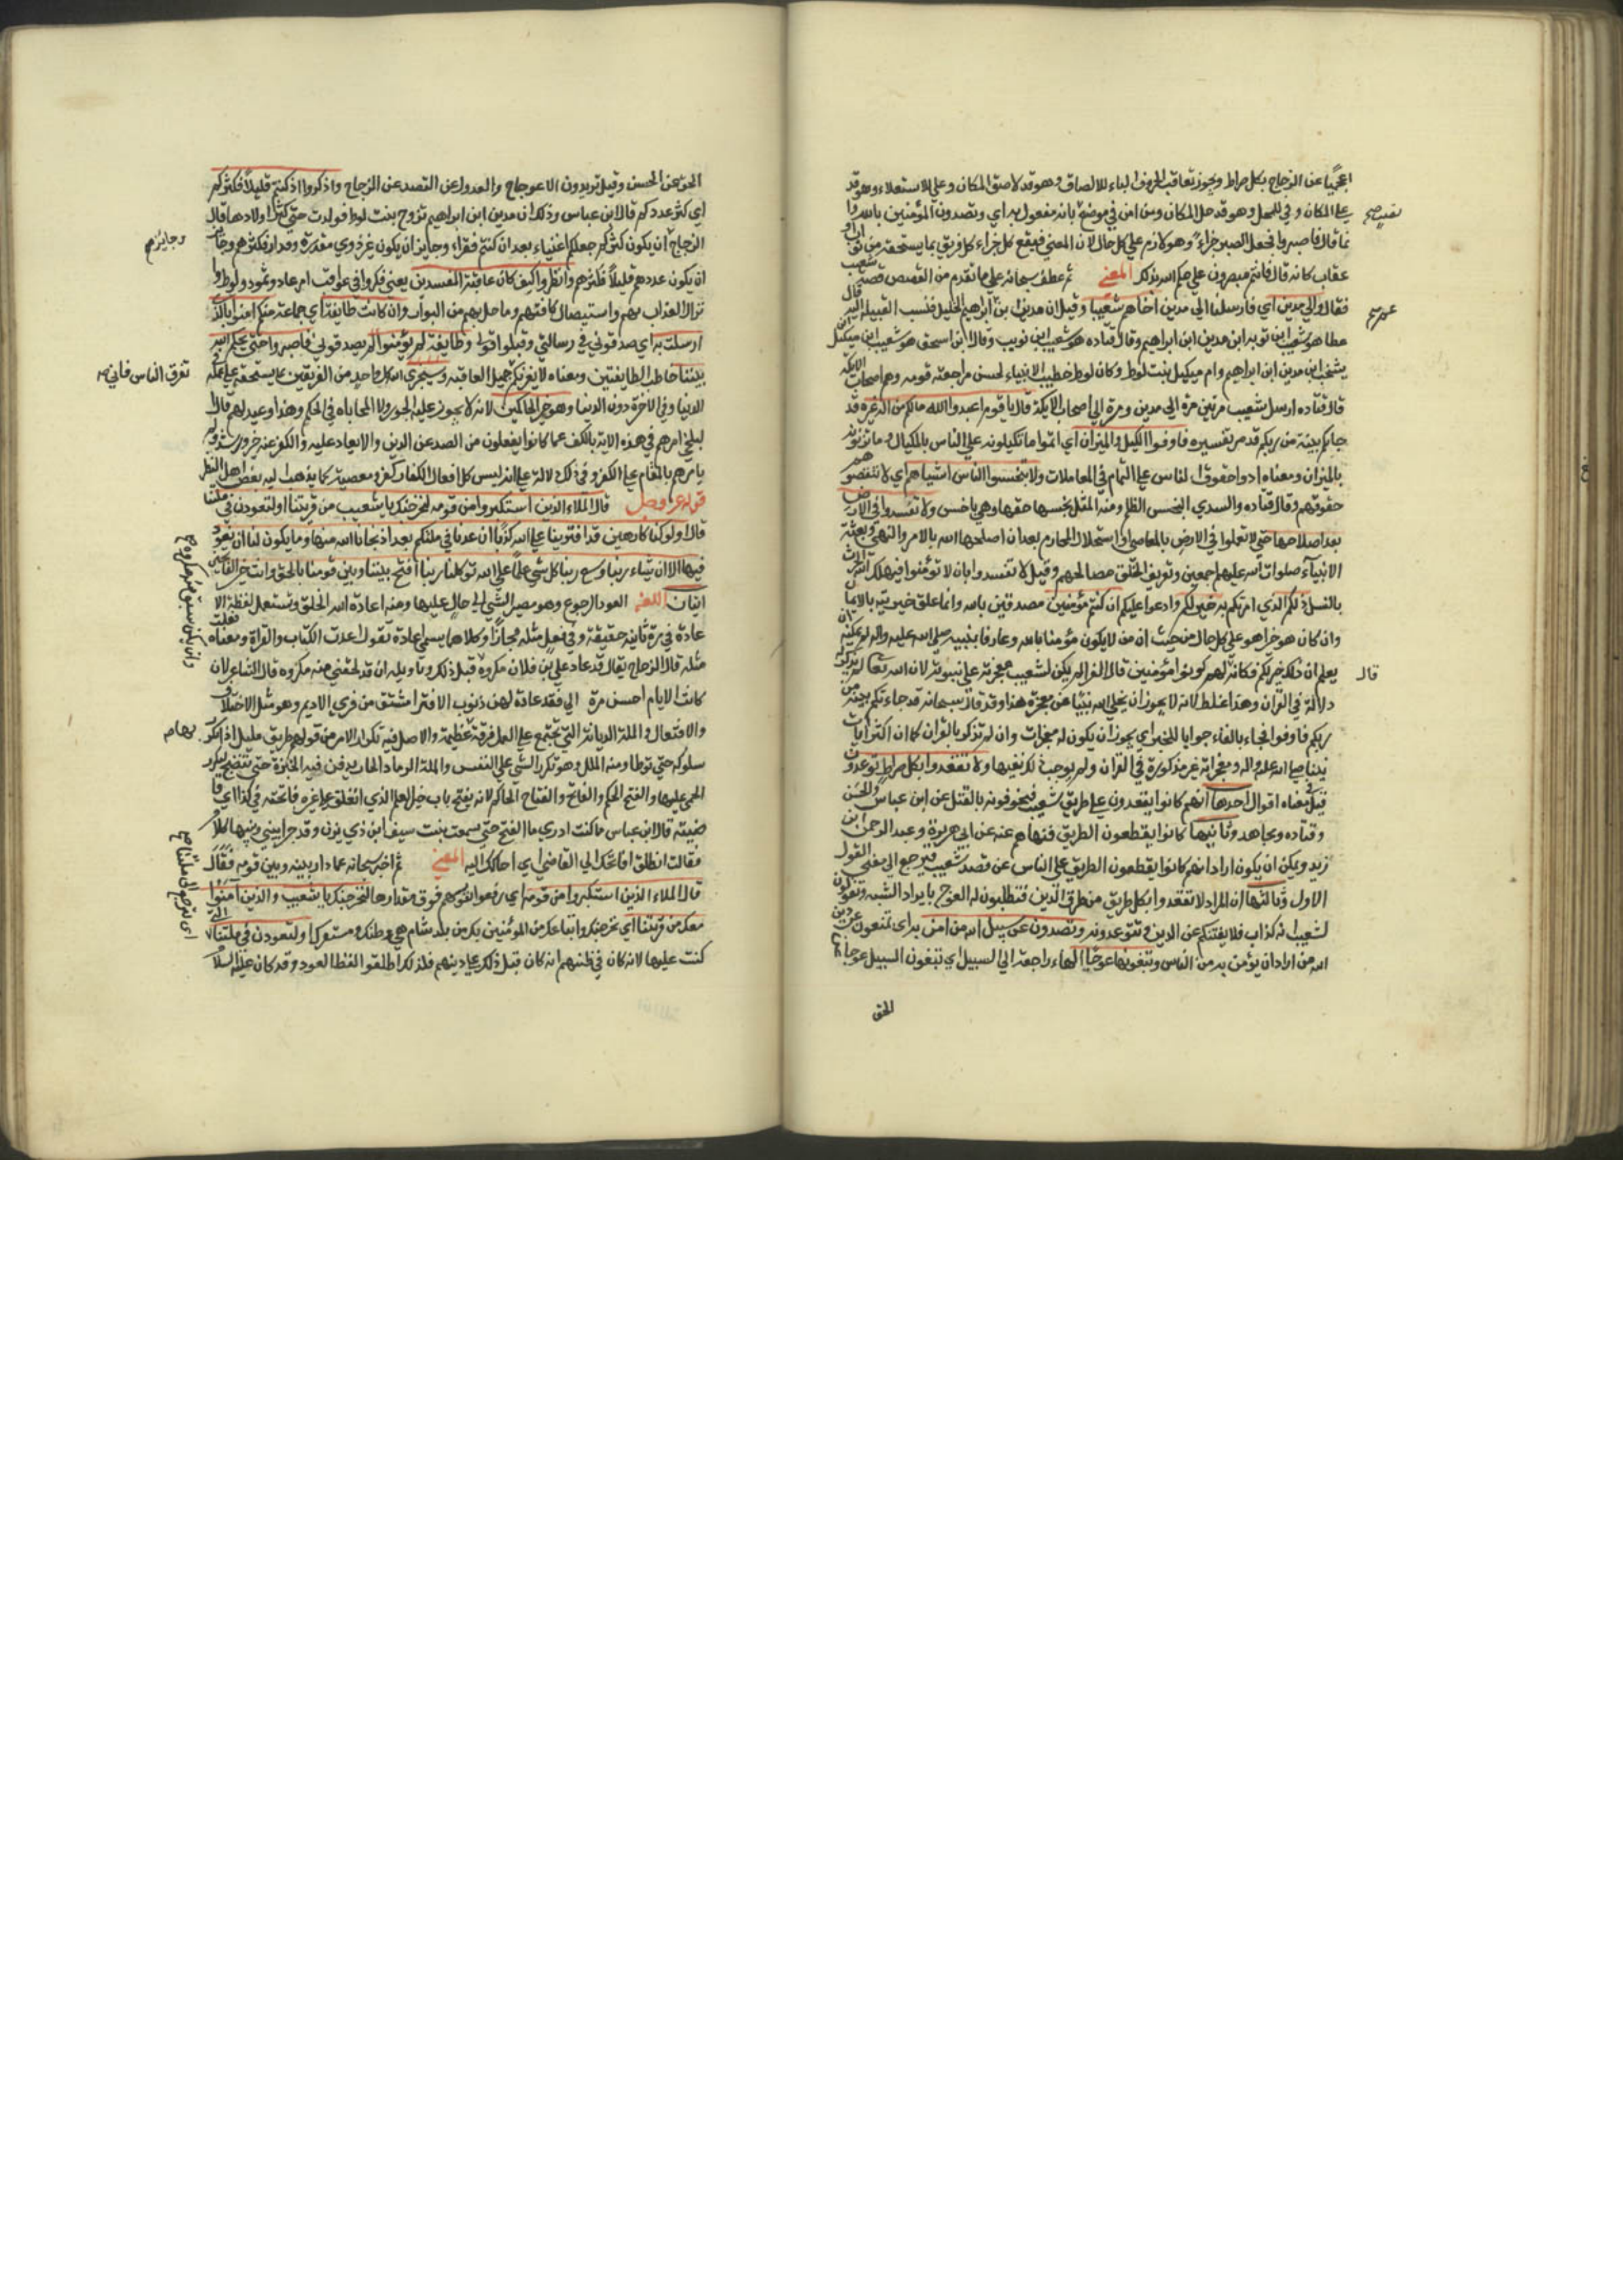 اعجميا عن الزجاج بكل صراط ويجوز تعاقب الحروف الباء للالصاق وهو قد لاصق المكان وعلى للاستعلاء وهو قد
على المكان وفي للمحل وهو قد حل المكان ومن امن في موضع بانه مفعول به اي وتصدون المؤمنين بالله
قال فاصبروا فجعل الصبر جزاء وهو لازم على كل حال لان المعنى فيقع كل جزاء كل فريق بما يستحقه من ثواب او
عقاب كانه قال فانتم مبصرون على حكم الله بذلك المعنى ثم عطف سبحانه على ما تقدم من القصص قصة شعيب
فقال والى مدين اي فارسلنا الى مدين اخاهم شعيبا وقيل ان مدين ابن ابراهيم الخليل فنسب القبيلة اليه قال
عطا هو شعيب ابن توبه ابن مدين ابن ابراهيم وقال قتاده هو شعيب ابن نويب وقال ابن اسحق هو شعيب ابن ميكيل ابن
يشخب ابن مدين ابن ابراهيم وام ميكيل بنت لوط وكان لوط خطيب الانبياء لحسن مراجعته قومه وهم اصحاب الايكة
قال قتاده ارسل شعيب مرتين مرة الى مدين ومرة الى اصحاب الايكة قال يا قوم اعبدوا الله مالكم من اله غيره قد
جاءتكم بينة من ربكم قد مر تفسيره فاوفوا الكيل والميزان اي اتموا ما تكيلونه على الناس بالمكيال وما تزنونه
بالميزان ومعناه ادوا حقوق الناس على التمام في المعاملات ولا تبخسوا الناس اشياهم اي لا تنقصوهم
حقوقهم وقال قتاده والسدي البخس الظلم ومنه المثل تحسبها حمقا وهي باخس ولا تفسدوا في الارض
بعد اصلاحها حتى لا تعملوا في الارض بالمعاصي واستحلال المحارم بعد ان اصلحها الله بالامر والنهي وبعثة
الانبياء صلوات الله عليهم اجمعين وتعريف الخلق مصالحهم وقيل لا تفسدوا بان لا تؤمنوا فيهلك الله الحرث
بالنسل ذلكم الذي امرتكم به خير لكم وادعوا عليكم ان كنتم مؤمنين مصدقين بالله وانما علق خيريته بالايمان
وان كان هو خيرا هو على كل حال من حيث ان من لا يكون مؤمنا بالله وعارفا بنبيه صلى الله عليه واله لم يمكنه ان
يعلم ان ذلك خير لكم فكانه لهم كونوا مؤمنين قال الفرا لم يكن لشعيب معجزة على نبوته لان الله تعالى لم يذكر له
دلالة في القران وهذا غلط لانه لا يجوز ان يخلي الله نبيا من معجزة هذا وقد قال سبحانه قد جاءتكم بينة من
ربكم فاوفوا فجاء بالفاء جوابا للخبر اي يجوز ان يكون له معجزات وان لم تذكر بالقران كما ان اكثر ايات
نبينا صلى الله عليه واله ومعجزاته غير مذكورة في القران ولم يوجب ذلك نفيها ولا تقعدوا بكل صراط توعدون
قيل في معناه اقوال احدها انهم كانوا يقعدون على طريق شعيب فيخوفونه بالقتل عن ابن عباس والحسن
وقتاده ومجاهد وثانيها كانوا يقطعون الطريق فنهاهم عنه عن ابي هريرة وعبد الرحمن ابن
زيد ويمكن ان يكون اراد انهم كانوا يقطعون الطريق على الناس عن قصد شعيب فيرجع الى معنى القول
الاول وثالثها ان المراد لا تقعدوا بكل طريق من طرق الدين فتطلبون له العوج بايراد الشبه وتقولون
لشعيب انه كذاب فلا يفتنكم عن الدين فتتوعدونه وتصدون عن سبيل الله من امن به اي تمنعون عن دين
الله من اراد ان يؤمن به من الناس وتبغونها عوجا الهاء راجعة الى السبيل اي تبغون السبيل عوجا عن
الحق
قال
الحق عن الحسن وقيل تريدون الاعوجاج والعدول عن القصد عن الزجاج واذكروا اذ كنتم قليلا فكثركم
اي كثر عددكم قال ابن عباس وذلك ان مدين ابن ابراهيم تزوج بنت لوط فولدت حتى كثر اولادها قال
الزجاج ان يكون كثركم جعلكم اغنياء بعد ان كنتم فقراء وجايز ان يكون غير ذوي مقدرة وقد ان فكثرهم وجايز
ان يكون عددهم قليلا فكثرهم وانظروا كيف كان عاقبة المفسدين يعني فكروا في عواقب امر عاد وثمود ولوط وا
نزال العذاب بهم واستيصال كافتهم وما حل بهم من البوار وان كانت طايفة اي جماعة منكم امنوا بالذي
ارسلت به اي صدقوني في رسالتي وقبلوا قولي وطايفة لم يؤمنوا لم يصدقوني فاصبروا حتى يحكم الله
بيننا خاطب الطايفتين ومعناه لا يغرنكم جميل العاقبة وسيجزي الله كل واحد من الفريقين بما يستحقه على عمله في
الدنيا وفي الاخرة دون الدنيا وهو خير الحاكمين لانه لا يجوز عليه الجور ولا المحاباه في الحكم وهذا وعيد لهم قال
البلخي امرهم في هذه الاية بالكف عما كانوا يفعلون من الصد عن الدين والابعاد عليه والكف عنه خير ورشد ولم
يامرهم بالمقام على الكفر وفي ذلك دلالة على انه ليس كل افعال الكفار كفر ومعصية كما يذهب اليه بعض اهل النظر
قوله عز وجل قال الملاء الذين استكبروا من قومه لنخرجنك يا شعيب من قريتنا او لتعودن في ملتنا
قال اولو كنا كارهين قد افترينا على الله كذبا ان عدنا في ملتكم بعد اذ نجانا الله منها وما يكون لنا ان نعود
فيها الا ان يشاء ربنا وسع ربنا كل شي علما على الله توكلنا ربنا افتح بيننا وبين قومنا بالحق وانت خير الفاتحين
ايتان اللغة العود الرجوع وهو مصير الشي الى حال عليها ومنه اعادة الله الخلق وتستعمل لفظة الا
عادة في مرة ثانية حقيقة وفي فعل مثله مجازا وكلاهما يسمى اعادة تقول اعدت الكتاب والقراة ومعناه فعلت
مثله قال الزجاج يقال قد عاد علي من فلان مكروه قبل ذلك وتاويله انه قد لحقني منه مكروه قال الشاعر لان
كانت الايام احسن مرة الي فقد عادة لهن ذنوب الافترا مشتق من فري الاديم وهو مثل الاختلاق
والافتعال والملة الديانة التي تجتمع على العمل فرقة عظيمة والاصل فيه تكرار الامر من قولهم طريق مليل اذا تكرر
سلوكه حتى توطا ومنه الملل وهو تكرر الشي على النفس والملة الرماد الحار يدفن فيه الخبزة حتى تنضج لتكرر
الحمى عليها والفتح الحكم والفاتح والفتاح الحاكم لانه يفتح باب العلم الذي انغلق على غيره فاتحته في كذا اي قا
ضيته قال ابن عباس ما كنت ادري ما الفتح حتى سمعت بنت سيف ابن ذي يزن وقد جرا بيني وبينها كلام
فقالت انطلق افاتحك الى القاضي اي احاكمك اليه المعنى ثم اخبر سبحانه عما دار بينه وبين قومه فقال
قال الملاء الذين استكبروا من قومه اي رفعوا انفسهم فوق مقدارها لنخرجنك يا شعيب والذين امنوا
معك من قريتنا اي نخرجنك واتباعك من المؤمنين بك من بلدتنا التي هي وطنك ومستقرك او لتعودن في ملتنا
كنت عليها لانه كان في ظنهم انه كان قبل ذلك على دينهم فلذلك اطلقوا لفظ العود وقد كان عليه السلام
وجايز
تفرق الناس فاني